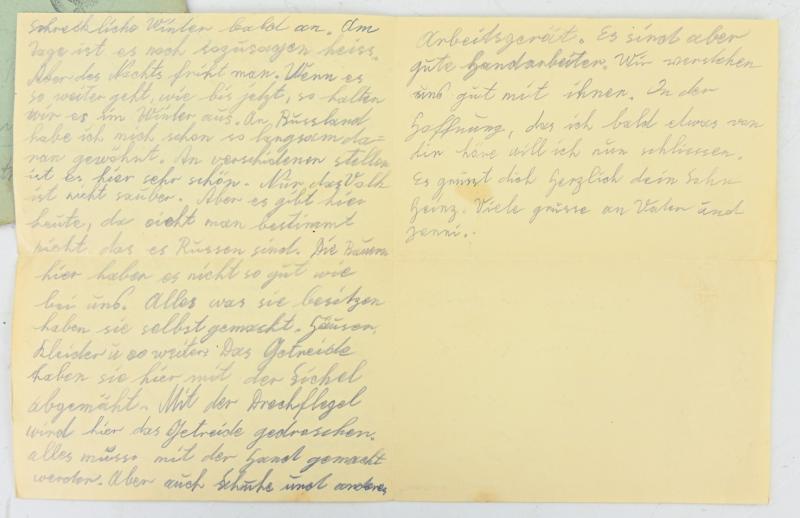 schreckliche Winter bald an. Am
Tage ist es noch sozusagen heiss.
Aber des Nachts friht man. Wenn es
so weiter geht, wie bis jetzt, so halten
wir es im Winter aus. An Russland
habe ich mich schon so langsam da=
ran gewöhnt. An verschidenen stellen
ist es hier sehr schön. Nur das Volk
ist nicht sauber. Aber es gibt hier
heute, da sieht man bestimmt
nicht das es Russen sind. Die Bauern
hier haben es nicht so gut wie
bei uns. Alles was sie besitzen
haben sie selbst gemacht. Häuser,
Kleider u so weiter. Das Getreide
haben sie hier mit der Sichel
abgemäht. Mit der Drechflegel
wird hier das Getreide gedroschen.
alles musse mit der Hand gemacht
werden. Aber auch Schuhe und anderes
Arbeitsgerät. Es sind aber
gute Handarbeiter. Wir verstehen
uns gut mit ihnen. In der
Hoffnung, das ich bald etwas von
dir höre will ich nun schliessen.
Es grüsst dich Herzlich dein Sohn
Heinz. Viele grüsse an Vater und